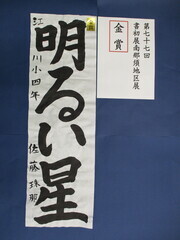 第七十七回
書初展南那須地区展
金賞
明るい星
江川小四年
佐藤珠